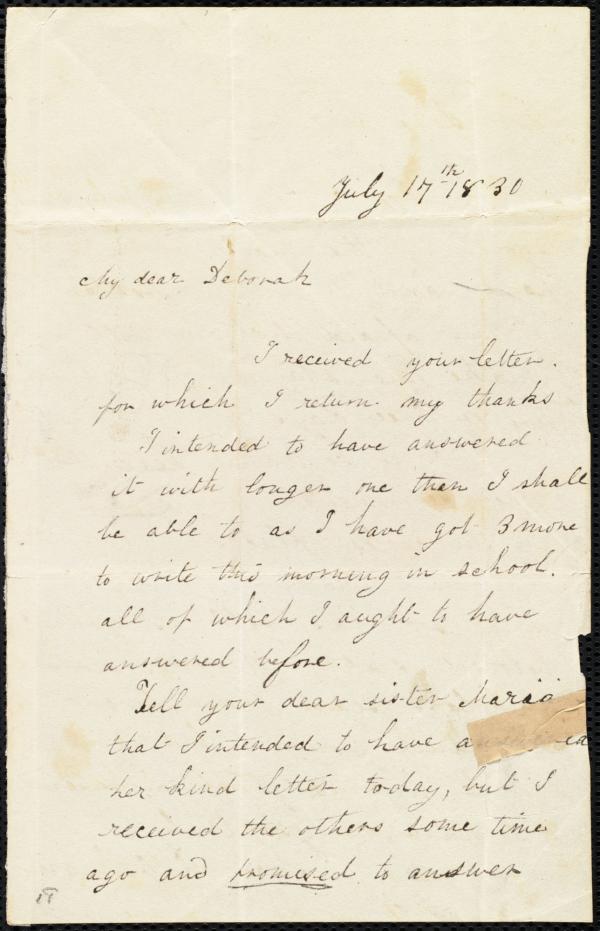 July 17th 1830
My dear Deborah
I received your letter.
for which I return my thanks
I intended to have answered
it with longer one than I shall
be able to as I have got 3 more
to write this morning in school.
all of which I aught to have
answered before.
Tell your dear sister Maria
that I intended to have
her kind letter today, but I
received the others some time
ago and promised to answer